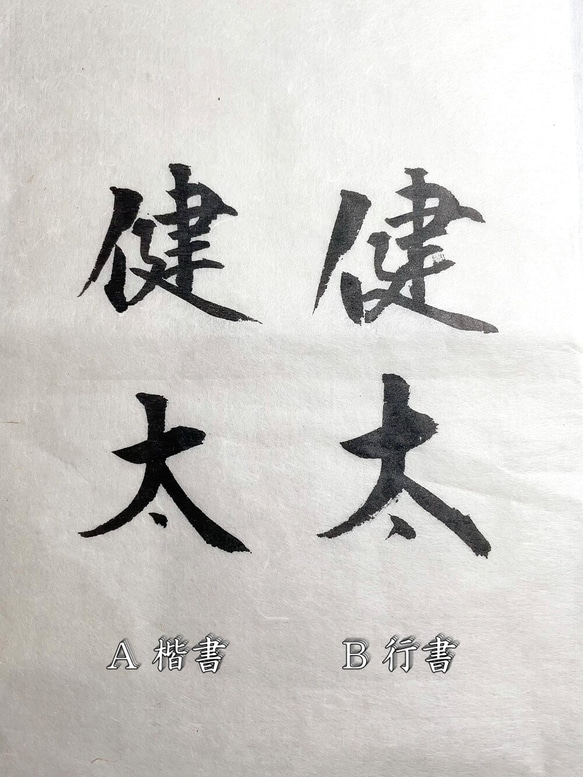 健太
健太
A 楷書
B 行書